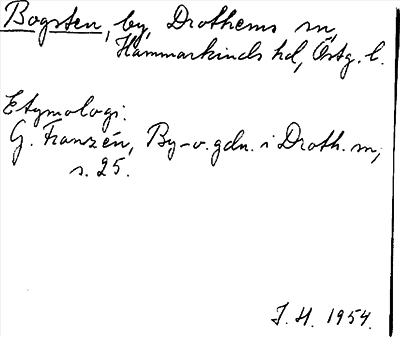 Bogsten, by, Drothems sn,
Hammarkinds hd, Östg. l.
Etymologi:
G. Franzén, By-o. gdn. i Droth. sn,
s. 25.
J. H. 1954.